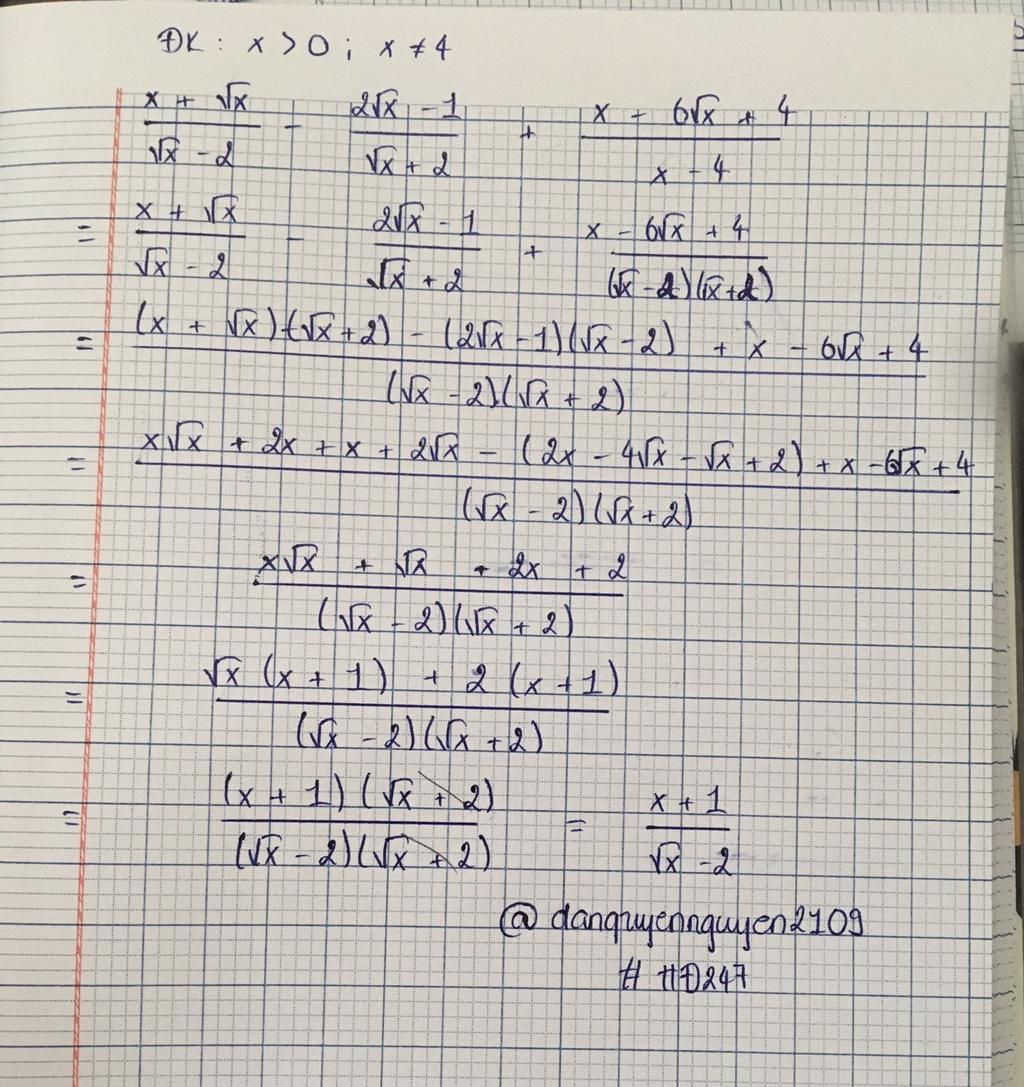 ĐK : x > 0 ; x ≠ 4
(x + √x)/(√x - 2) - (2√x - 1)/(√x + 2) + (x - 6√x + 4)/(x - 4)
= (x + √x)/(√x - 2) - (2√x - 1)/(√x + 2) + (x - 6√x + 4)/((√x - 2)(√x + 2))
= ((x + √x)(√x + 2) - (2√x - 1)(√x - 2) + x - 6√x + 4)/((√x - 2)(√x + 2))
= (x√x + 2x + x + 2√x - (2x - 4√x - √x + 2) + x - 6√x + 4)/((√x - 2)(√x + 2))
= (x√x + √x + 2x + 2)/((√x - 2)(√x + 2))
= (√x (x + 1) + 2 (x + 1))/((√x - 2)(√x + 2))
= ((x + 1)(√x + 2))/((√x - 2)(√x + 2)) = (x + 1)/(√x - 2)
@ danquyennguyen2109
# HĐ247